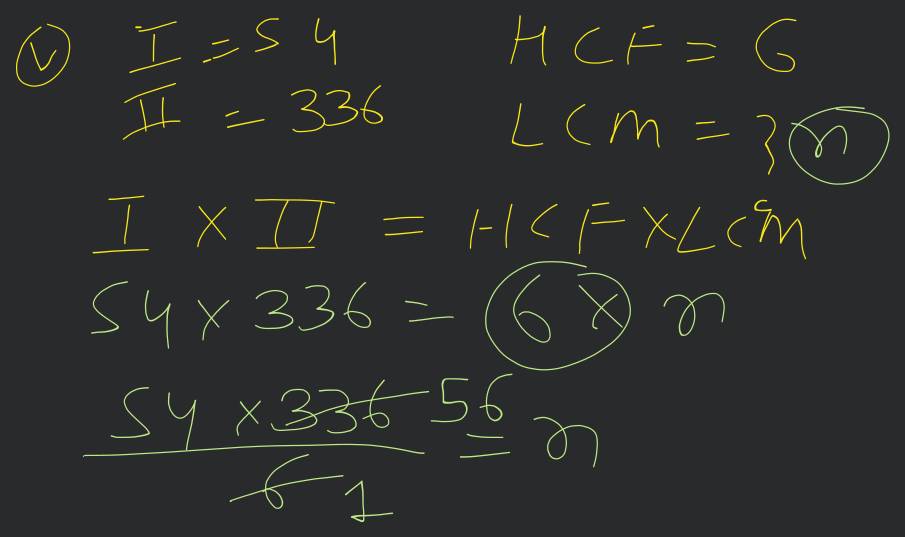 (v) I = 54 HCF = 6
II = 336 LCM = } n
I × II = HCF × LCM
54 × 336 = 6 × n
54 × 336 56 = n
6 1